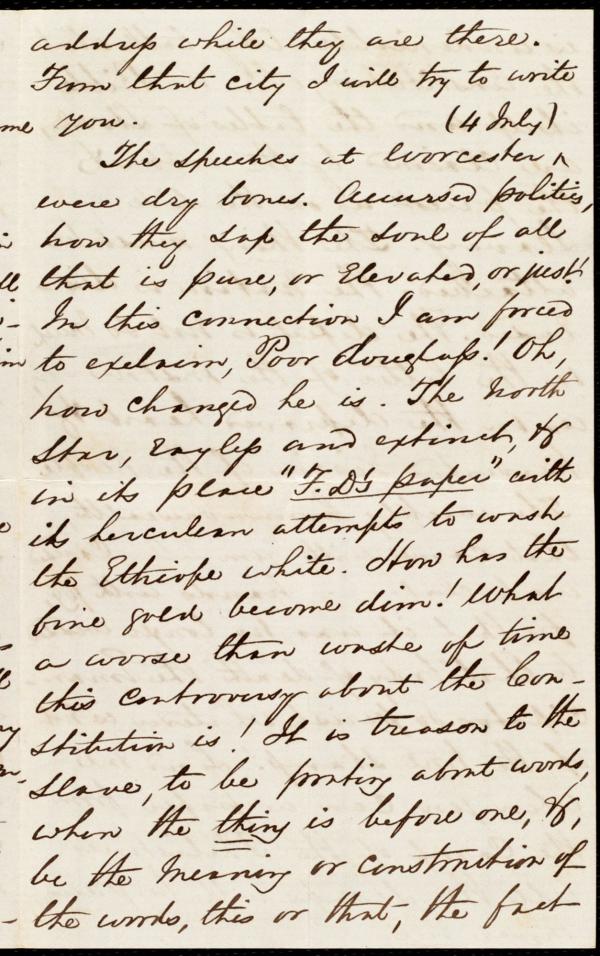 address while they are there.
From that city I will try to write
you. (4 July)
The speeches at Worcester ^
were dry bones. Accursed politics,
how they sap the soul of all
that is pure, or Elevated, or just!
In this connection I am forced
to exclaim, Poor Douglass! Oh,
how changed he is. The North
Star, rayless and extinct, &
in its place "F.D's paper" with
its herculean attempts to wash
the Ethiope white. How has the
fine gold become dim! What
a worse than waste of time
this controversy about the Con-
stitution is! It is treason to the
slave, to be prating about words,
when the thing is before one, &,
be the meaning or construction of
the words, this or that, the fact